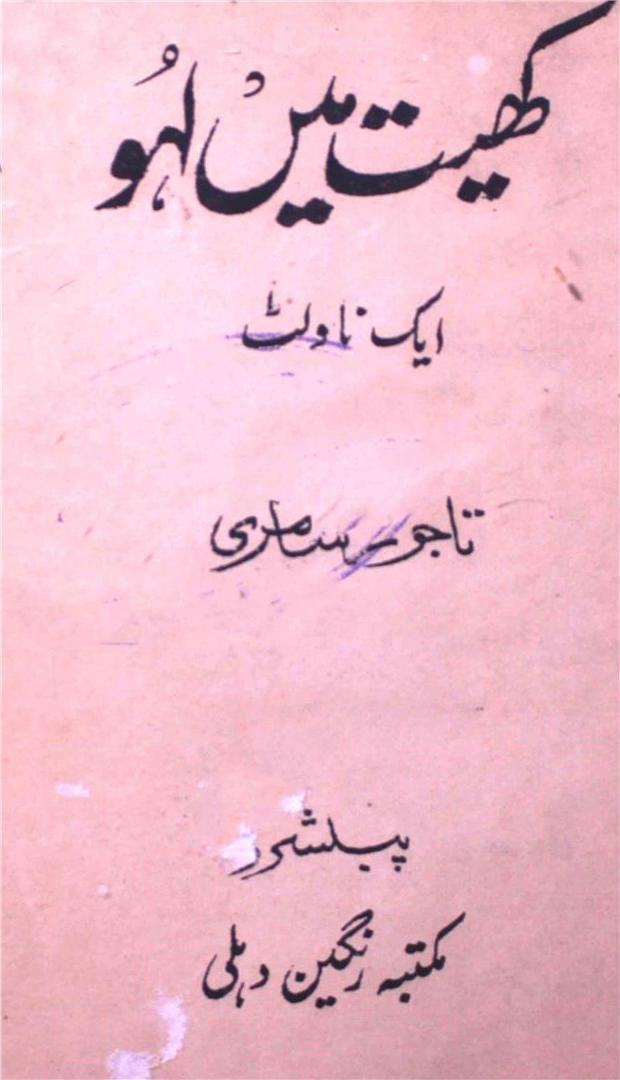 کھیت میں لہُو
ایک ناولٹ
تاجور سامری
پبلشرز
مکتبہ رنگین دہلی